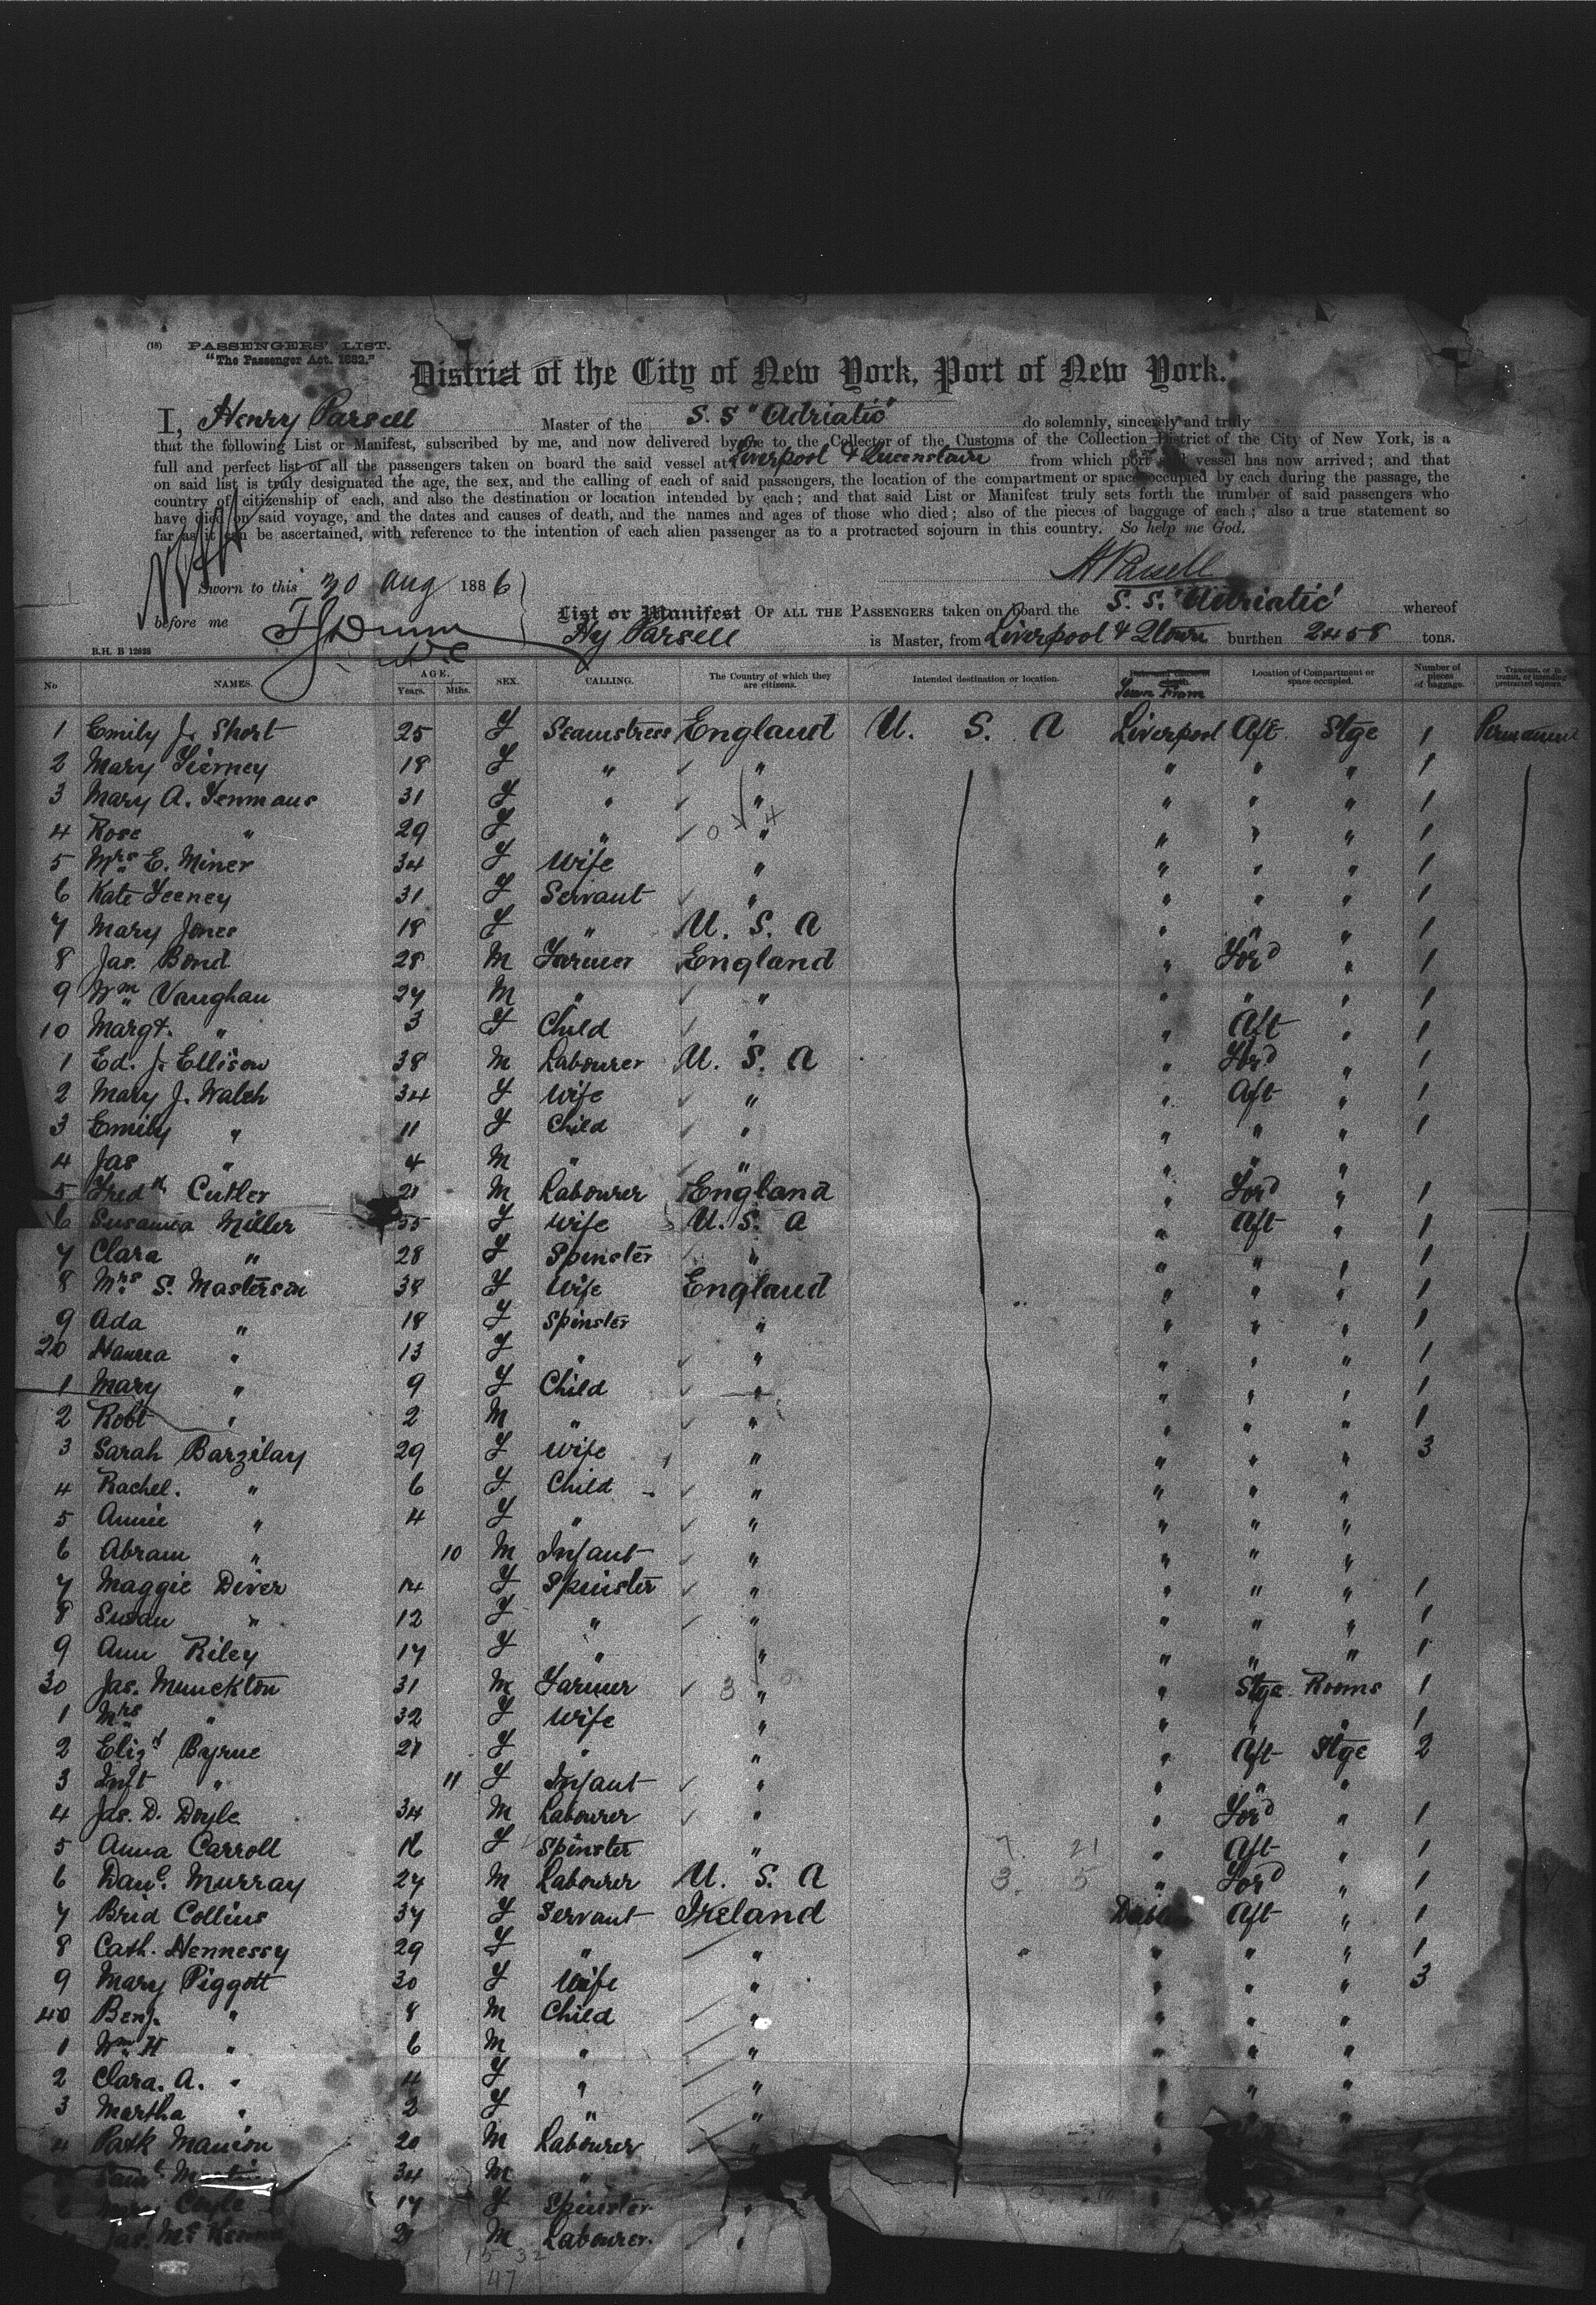 (18) PASSENGERS' LIST.
"The Passenger Act. 1882."
District of the City of New York, Port of New York.
I, Henry Parsell Master of the S. S "Adriatic" do solemnly, sincerely and truly
that the following List or Manifest, subscribed by me, and now delivered by me to the Collector of the Customs of the Collection District of the City of New York, is a
full and perfect list of all the passengers taken on board the said vessel at Liverpool & Queenstown from which port said vessel has now arrived; and that
on said list is truly designated the age, the sex, and the calling of each of said passengers, the location of the compartment or space occupied by each during the passage, the
country of citizenship of each, and also the destination or location intended by each; and that said List or Manifest truly sets forth the number of said passengers who
have died on said voyage, and the dates and causes of death, and the names and ages of those who died; also of the pieces of baggage of each; also a true statement so
far as it can be ascertained, with reference to the intention of each alien passenger as to a protracted sojourn in this country. So help me God.
H Parsell
Sworn to this 30 Aug 1886
before me
List or Manifest OF ALL THE PASSENGERS taken on board the S. S. "Adriatic" whereof
Hy Parsell is Master, from Liverpool & Qtown burthen 2458 tons.
B.H. B 12628
No NAMES. AGE. Years. Mths. SEX. CALLING. The Country of which they are citizens. Intended destination or location. Date and cause of death. Town From Location of Compartment or space occupied. Number of pieces of baggage. Transient, or in transit, or intending protracted sojourn.
1 Emily J. Short 25 F Seamstress England U. S. A Liverpool Aft Stge 1 Permanent
2 Mary Tierney 18 F " " " " " 1
3 Mary A. Yenmans 31 F " " " " " 1
4 Rose " 29 F " " " " " 1
5 Mrs E. Miner 34 F Wife " " " " 1
6 Kate Feeney 31 F Servant " " " " 1
7 Mary Jones 18 F " U. S. A " " " 1
8 Jas. Bond 28 M Farmer England " For'd " 1
9 Wm Vaughan 27 M " " " " " 1
10 Margt. " 3 F Child " " Aft " 1
1 Ed. J. Ellison 38 M Labourer U. S. A " For'd " 1
2 Mary J. Walsh 34 F Wife " " Aft " 1
3 Emily " 11 F Child " " " " 1
4 Jas " 4 M " " " " "
5 Fredk Cutler 21 M Labourer England " For'd " 1
6 Susanna Miller 55 F Wife U. S. A " Aft " 1
7 Clara " 28 F Spinster " " " " 1
8 Mrs S. Masterson 38 F Wife England " " " 1
9 Ada " 18 F Spinster " " " " 1
20 Hanna " 13 F " " " " " 1
1 Mary " 9 F Child " " " " 1
2 Robt " 2 M " " " " " 1
3 Sarah Barzilay 29 F Wife " " " " 3
4 Rachel. " 6 F Child " " " "
5 Annie " 4 F " " " " "
6 Abram " 10 M Infant " " " "
7 Maggie Diver 14 F Spinster " " " " 1
8 Susan " 12 F " " " " " 1
9 Ann Riley 17 F " " " " " 1
30 Jas. Munckton 31 M Farmer " " Stge Rooms 1
1 Mrs " 32 F Wife " " " " 1
2 Elizth Byrne 21 F " " " Aft Stge 2
3 Inft " 11 F Infant " " " "
4 Jas. D. Doyle 34 M Labourer " " For'd " 1
5 Anna Carroll 16 F Spinster " " Aft " 1
6 Danl. Murray 27 M Labourer U. S. A " For'd " 1
7 Brid Collins 37 F Servant Ireland Dublin Aft " 1
8 Cath. Hennessy 29 F " " " " " 1
9 Mary Piggott 30 F Wife " " " " 3
40 Benj. " 8 M Child " " " "
1 Wm H " 6 M " " " " "
2 Clara. A. " 4 F " " " " "
3 Martha " 2 F " " " " "
4 Patk Manion 20 M Labourer " "
Saml 34 M "
Coyle 17 F Spinster "
Jas. McKenna 21 M Labourer. "
15 32
47